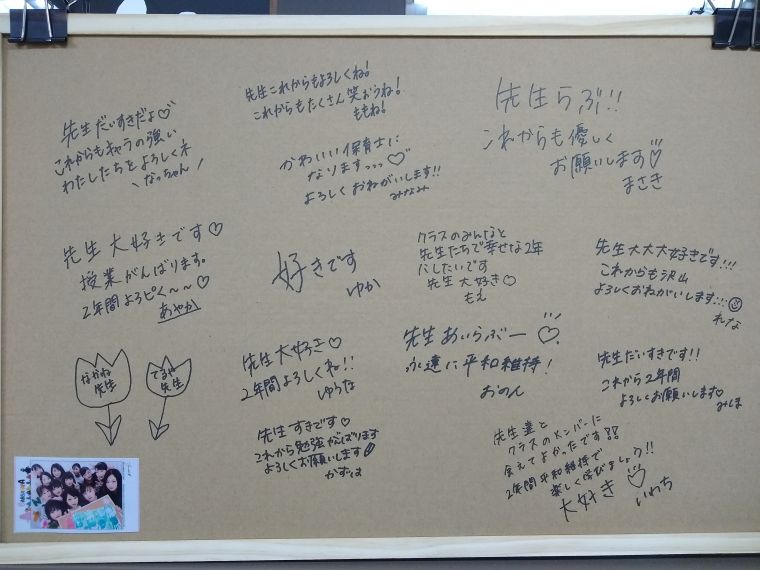 先生だいすきだよ♡
これからもキャラの強い
わたしたちをよろしくネ
\なっちゃん/
先生これからもよろしくね!
これからもたくさん笑おうね!
ももね!
かわいい保育士に
なりますっっっ♡
よろしくおねがいします!!
みなみ
先生らぶ!!
これからも優しく
お願いします♡
まさき
先生大好きです♡
授業がんばります。
2年間よろピく〜〜♡
あやか
好きです
ゆか
クラスのみんなと
先生たちで幸せな2年
にしたいです
先生大好き♡
もえ
先生大大大好きです!!!
これからも沢山
よろしくおねがいします...☺
れな
なかね
先生
てるや
先生
先生大好き♡
2年間よろしくね!!
ゆらな
先生あいらぶー♡
永遠に平和維持!
おのん
先生だいすきです!!
これから2年間
よろしくお願いします♡
みしま
先生すきです♡
これから勉強がんばります
よろしくお願いします
かずは
先生達と
クラスのメンバーに
会えてよかったです!!
2年間平和維持で
楽しく学びましょう!!
大好き♡
いわち